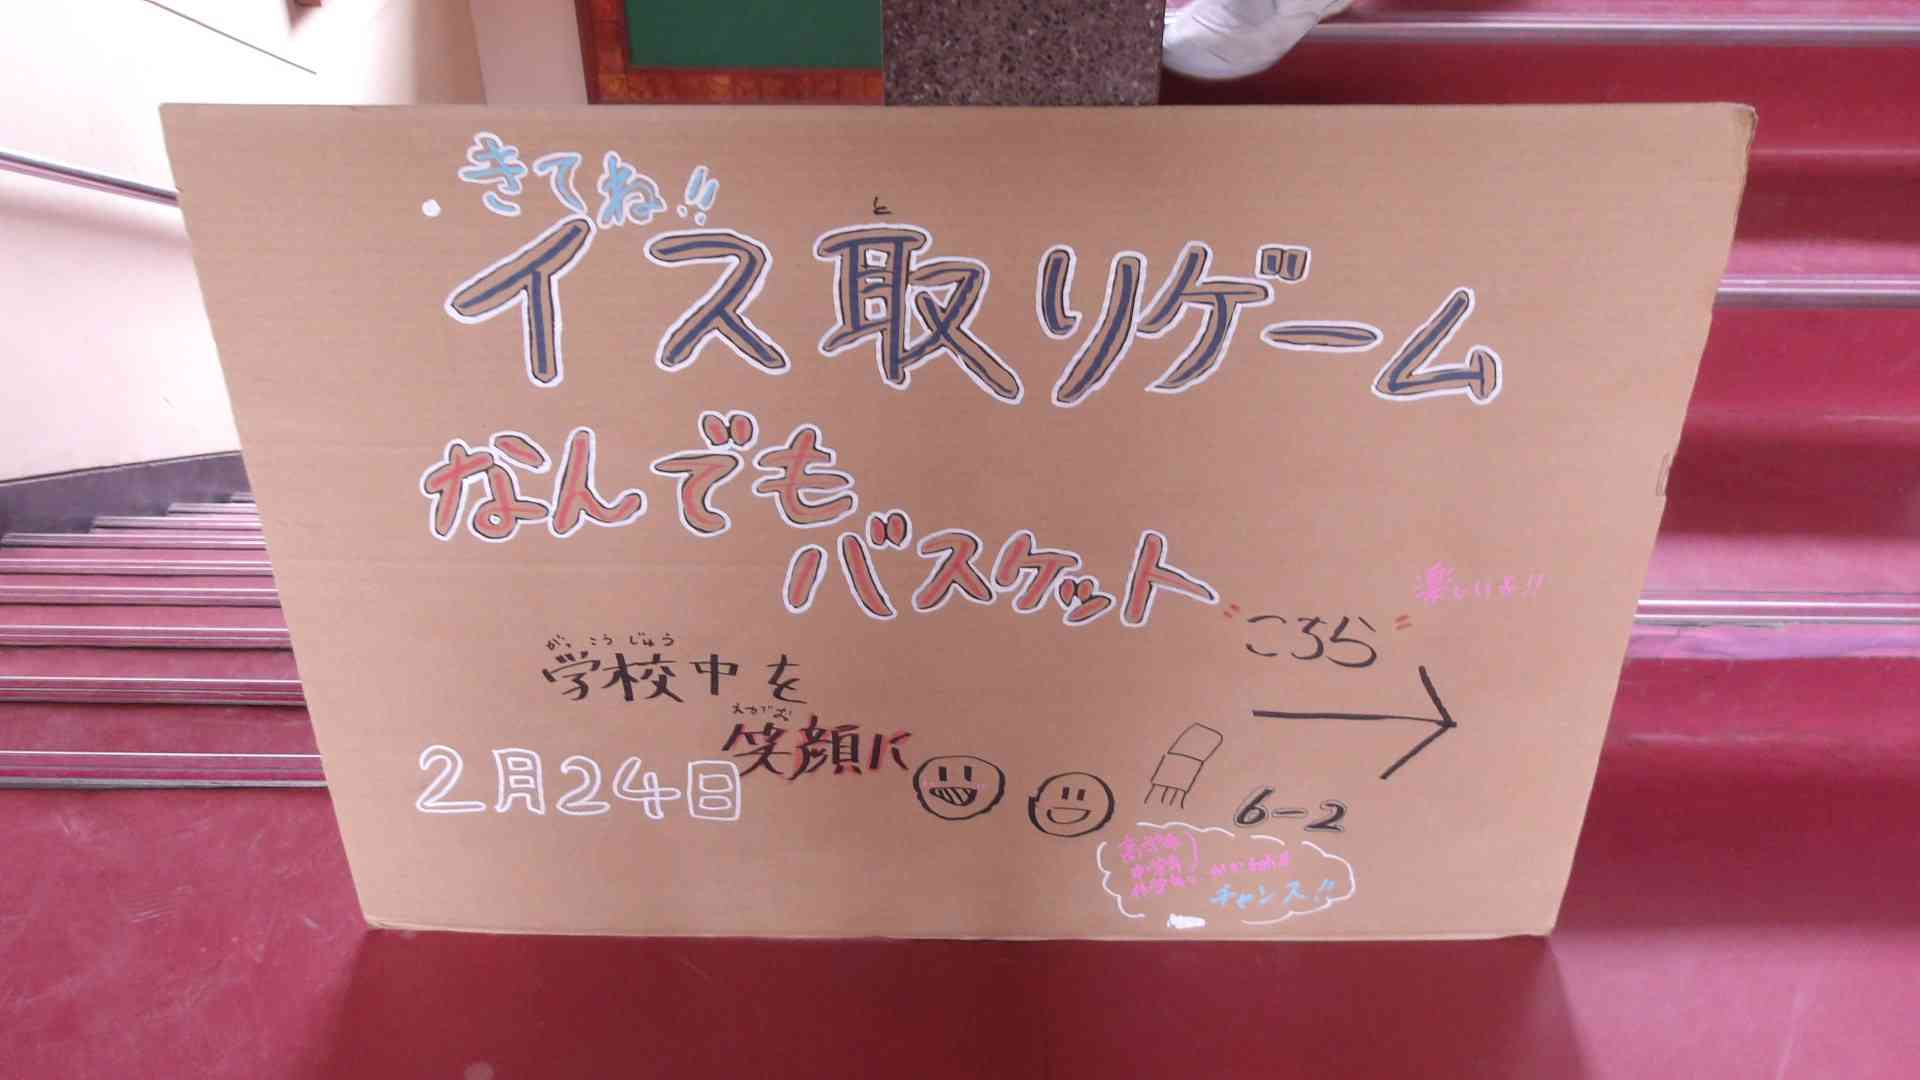 きてね!!
イス取りゲーム
と
なんでも
バスケット
楽しいよ!!
"こちら"
がっこうじゅう
学校中を
笑顔に
2月24日
6-2
高学年
中学年
低学年
チャンス!!